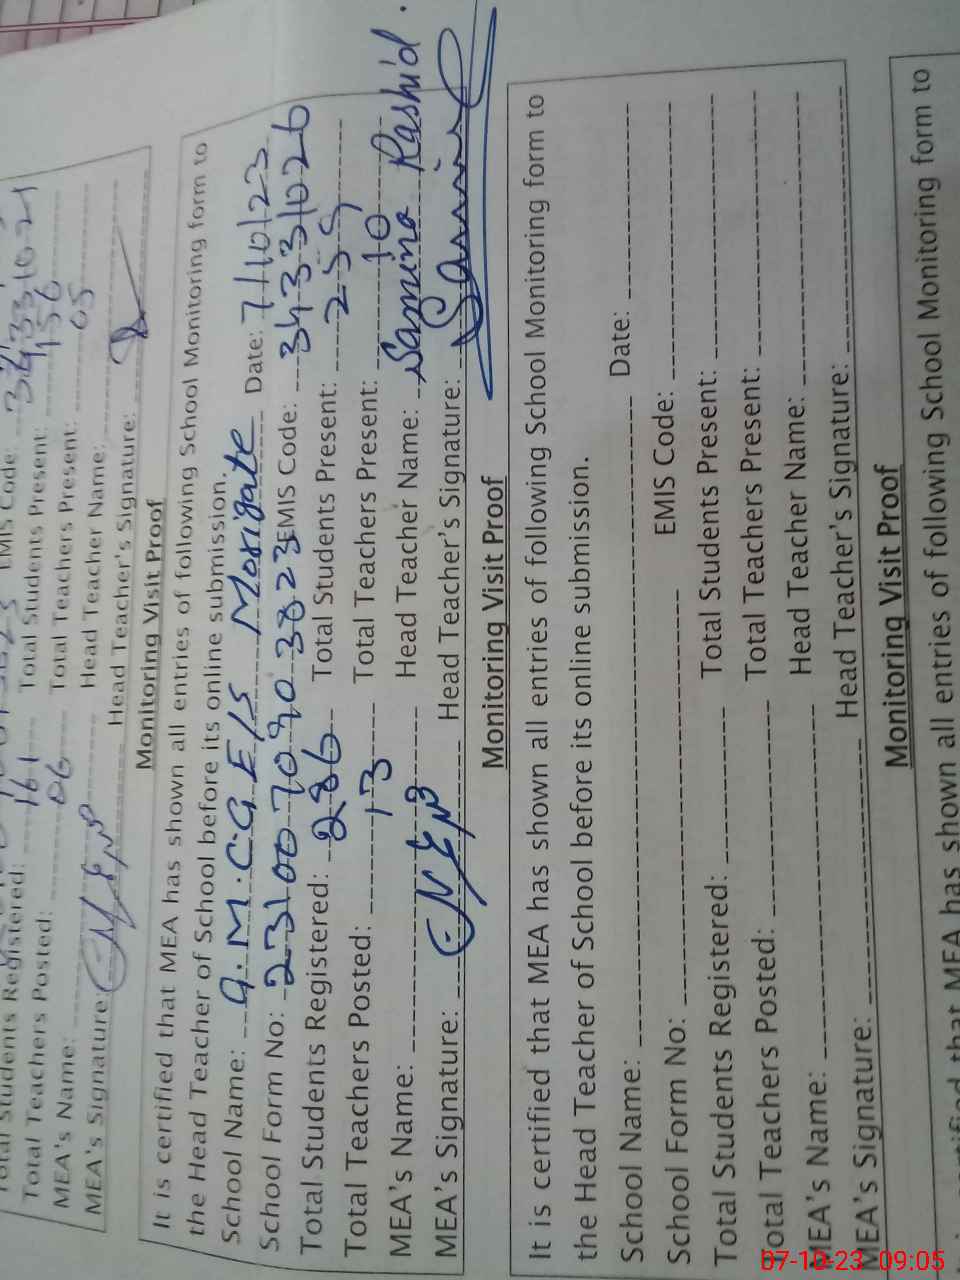 EMIS Code: 34331021
Total Students Registered: 161 Total Students Present: 156
Total Teachers Posted: 06 Total Teachers Present: 05
MEA's Name: Head Teacher Name:
MEA's Signature: Head Teacher's Signature:
Monitoring Visit Proof
It is certified that MEA has shown all entries of following School Monitoring form to
the Head Teacher of School before its online submission.
School Name: G.M.C.G.E/S Morigate Date: 7/10/23
School Form No: 2310070903823 EMIS Code: 34331026
Total Students Registered: 286 Total Students Present: 259
Total Teachers Posted: 13 Total Teachers Present: 10
MEA's Name: Head Teacher Name: Samina Rashid.
MEA's Signature: Head Teacher's Signature:
Monitoring Visit Proof
It is certified that MEA has shown all entries of following School Monitoring form to
the Head Teacher of School before its online submission.
School Name: Date:
School Form No: EMIS Code:
Total Students Registered: Total Students Present:
Total Teachers Posted: Total Teachers Present:
MEA's Name: Head Teacher Name:
MEA's Signature: Head Teacher's Signature:
Monitoring Visit Proof
certified that MEA has shown all entries of following School Monitoring form to
07-10-23 09:05